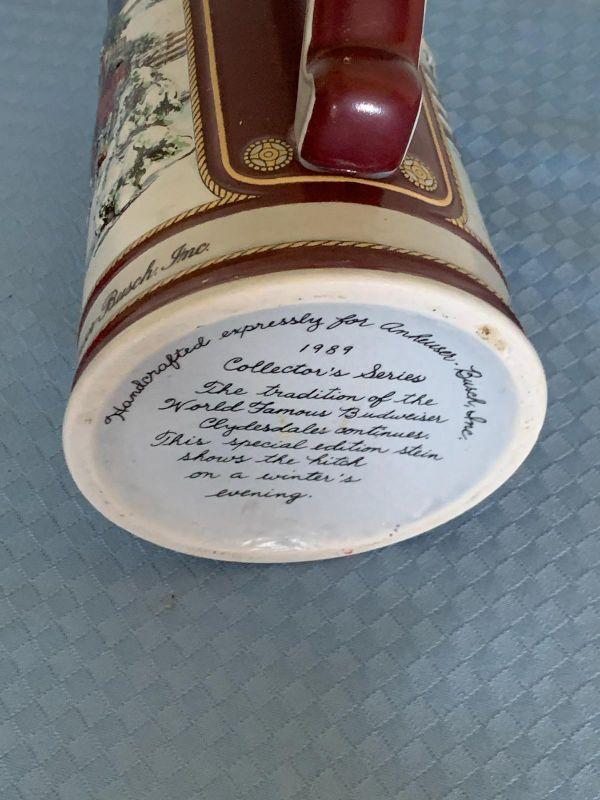 Busch, Inc.
Handcrafted expressly for Anheuser-Busch, Inc.
1989
Collector's Series
The tradition of the
World Famous Budweiser
Clydesdales continues.
This special edition stein
shows the hitch
on a winter's
evening.